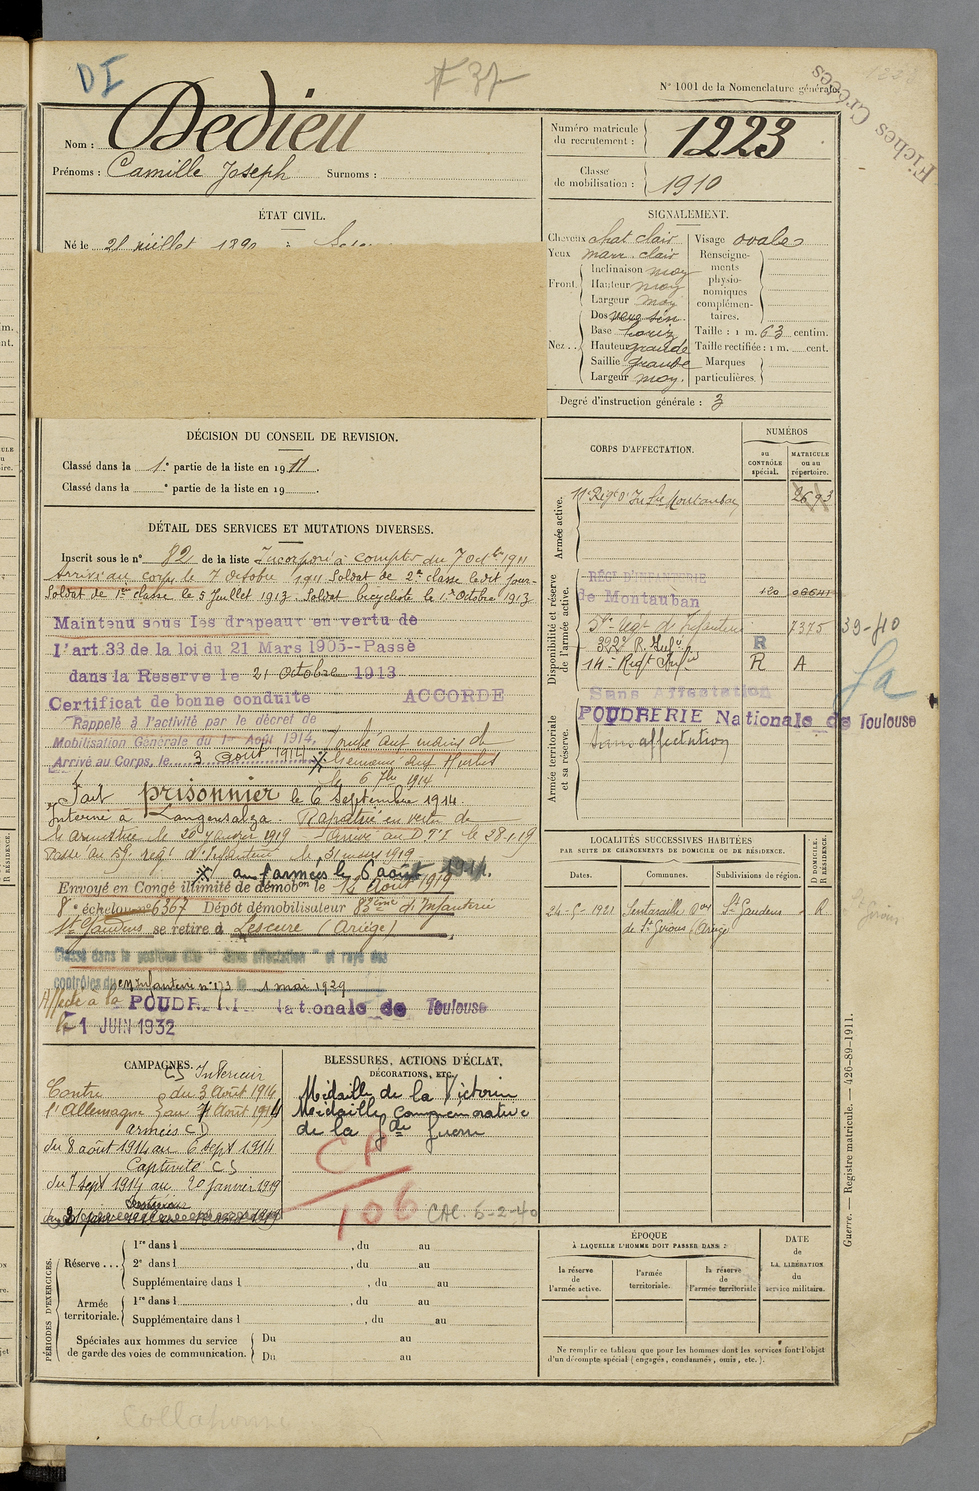 DI
F 37
N° 1001 de la Nomenclature générale.
Fiches Créées
Nom : Dedieu
Prénoms : Camille Joseph Surnoms :
Numéro matricule du recrutement : 1223
Classe de mobilisation : 1910
ÉTAT CIVIL.
Né le 21 juillet 1890
SIGNALEMENT.
Cheveux chat clair
Yeux marr. clair
Front.
Inclinaison moy
Hauteur moy
Largeur moy
Nez..
Dos
Base horiz
Hauteur grande
Saillie grande
Largeur moy.
Visage ovale
Renseignements physionomiques complémentaires.
Taille : 1 m. 63 centim.
Taille rectifiée : 1 m. cent.
Marques particulières.
Degré d'instruction générale : 3
DÉCISION DU CONSEIL DE REVISION.
Classé dans la 1e partie de la liste en 1911.
Classé dans la ° partie de la liste en 19
CORPS D'AFFECTATION.
NUMÉROS
au CONTRÔLE spécial.
MATRICULE ou au répertoire.
Armée active.
11e Régt d'Infie Montauban 2693
Disponibilité et réserve de l'armée active.
RÉGT D'INFANTERIE
de Montauban
Regt d'Infanterie 7375
39-40
R
14e Regt Infie R A
Armée territoriale et sa réserve.
Sans Affectation
POUDRERIE Nationale de Toulouse
Sans affectation
DÉTAIL DES SERVICES ET MUTATIONS DIVERSES.
Inscrit sous le n° 82 de la liste Incorporé à compter du 7 octbre 1911
Arrivé au corps le 7 octobre 1911 Soldat de 2e classe ledit jour-
Soldat de 1re classe le 5 Juillet 1913. Soldat bicycliste le 1er Octobre 1913
Maintenu sous les drapeaux en vertu de
l'art.33 de la loi du 21 Mars 1905--Passé
dans la Reserve le 21 octobre 1913
Certificat de bonne conduite ACCORDÉ
Rappelé à l'activité par le décret de
Mobilisation Générale du 1er Août 1914, Tombé aux mains de
Arrivé au Corps, le 3 août 1914
le 6 7bre 1914
Fait prisonnier le 6 Septembre 1914.
Interné à Langensalza. Rapatrié en vertu de
l'armistice le 20 Janvier 1919 Arrivé au le 28-1-19
Passé au 59e regt d'Infanterie le 31 mars 1919
aux armées le 8 août 1914.
Envoyé en Congé illimité de démobon le 14 Août 1919
8e échelon n° 6367 Dépôt démobilisateur 83ème d'Infanterie
St Gaudens se retire à Lescure (Ariège)
Classé dans la position dite "Sans affectation" et rayé des
contrôles du Infanterie n° 173 le 1 mai 1929
Affecté à la POUDR Nationale de Toulouse
le -1 JUIN 1932
LOCALITÉS SUCCESSIVES HABITÉES
PAR SUITE DE CHANGEMENTS DE DOMICILE OU DE RÉSIDENCE.
Dates. Communes. Subdivisions de région. D DOMICILE. R RÉSIDENCE.
24-5-1921 Sentaraille con de St Girons (Ariège St Gaudens R
CAMPAGNES.
CS Intérieur
Contre l'Allemagne
du 3 Août 1914
au 7 Août 1914
armées CD
du 8 août 1914 au 6 sept 1914
Captivité CS
du 7 sept 1914 au 20 janvier 1919
BLESSURES, ACTIONS D'ÉCLAT,
DÉCORATIONS, ETC.
Médaille de la Victoire
Médaille Commémorative
de la Gde Guerre
CP
106
CAC. 5-2-40
PÉRIODES D'EXERCICES.
Réserve...
1re dans l , du au
2e dans l , du au
Supplémentaire dans l , du au
Armée territoriale.
1re dans l , du au
Supplémentaire dans l , du au
Spéciales aux hommes du service de garde des voies de communication.
Du au
Du au
ÉPOQUE
À LAQUELLE L'HOMME DOIT PASSER DANS :
la réserve de l'armée active.
l'armée territoriale.
la réserve de l'armée territoriale
DATE de LA LIBÉRATION du service militaire.
Ne remplir ce tableau que pour les hommes dont les services font l'objet
d'un décompte spécial (engagés, condamnés, omis, etc.).
Guerre. — Registre matricule. — 426-89-1911.